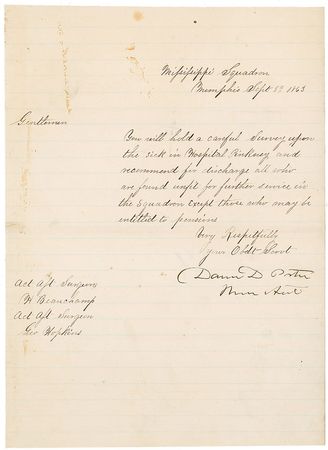 Mississippi Squadron
Memphis Sept 8th 1863
Gentlemen
You will hold a careful Survey upon
the sick in Hospital Pinkney and
recommend for discharge all who
are found unfit for further service in
the Squadron except those who may be
entitled to pensions
Very Respectfully
Your Obdt Servt
David D. Porter
Act Asst Surgeon
W Beauchamp
Act Asst Surgeon
Geo Hopkins